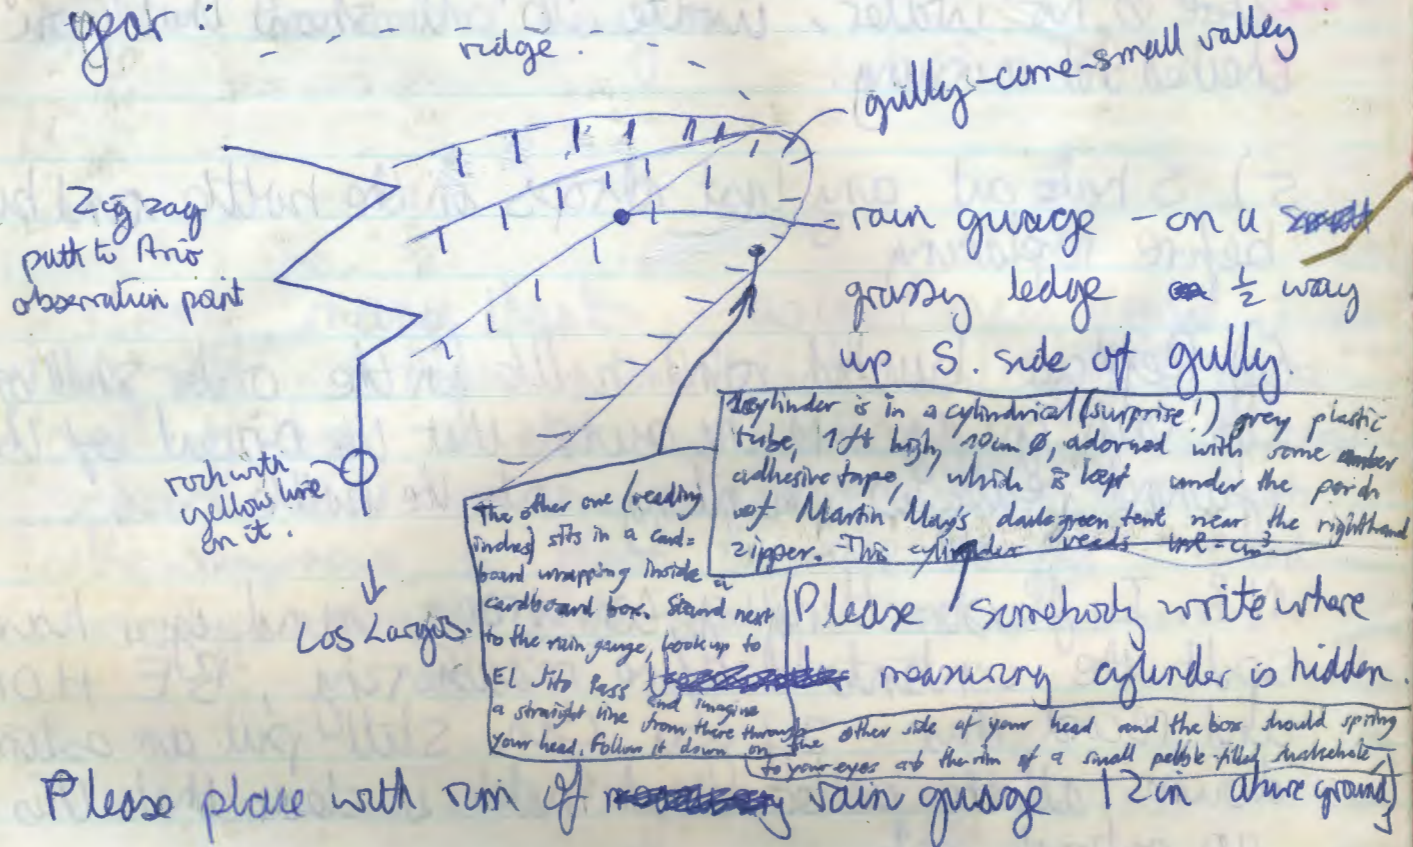 year:
ridge.
gully-come-small valley
Zig zag
path to Ario
observation point
rain guage - on a
grassy ledge ½ way
up S. side of gully.
cylinder is in a cylindrical (surprise!) grey plastic
tube, 1 ft high, 10cm Ø, adorned with some
adhesive tape, which is kept under the porch
of Martin May's dark green tent near the righthand
zipper. This cylinder reads ml = cm³
rock with
yellow line
on it.
Los Lagos.
The other one (reading
inches) sits in a card=
board wrapping inside a
cardboard box. Stand next
to the rain gauge, look up to
El Jito Pass and imagine
a straight line from there through
your head. Follow it down on the other side of your head and the box should spring
to your eyes at the rim of a small pebble-filled shakehole,
Please somebody write where
measuring cylinder is hidden.
Please place with rim of rain guage 12in above ground